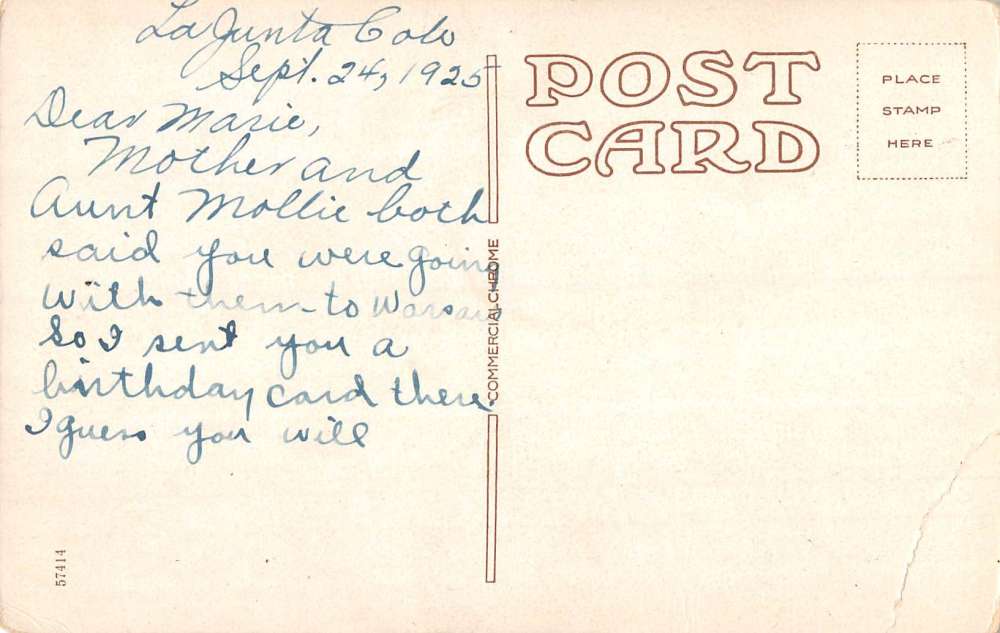 La Junta Colo
Sept. 24, 1925
Dear Marie,
Mother and
Aunt Mollie both
said you were going
with them to Warsaw
So I sent you a
birthday card there.
I guess you will
POST
CARD
PLACE
STAMP
HERE
COMMERCIALCHROME
57414